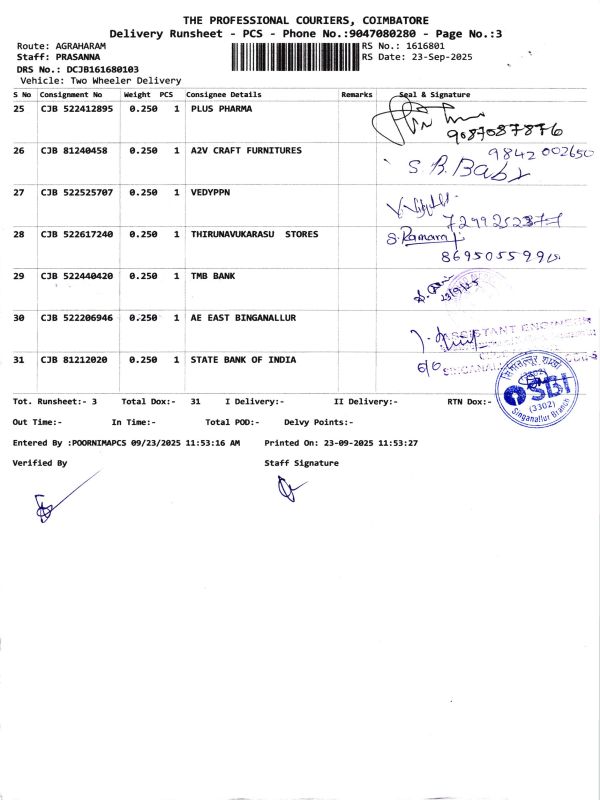 THE PROFESSIONAL COURIERS, COIMBATORE
Delivery Runsheet - PCS - Phone No.:9047080280 - Page No.:3
Route: AGRAHARAM
Staff: PRASANNA
DRS No.: DCJB161680103
Vehicle: Two Wheeler Delivery
RS No.: 1616801
RS Date: 23-Sep-2025
S No Consignment No Weight PCS Consignee Details Remarks Seal & Signature
25 CJB 522412895 0.250 1 PLUS PHARMA
9087087876
26 CJB 81240458 0.250 1 A2V CRAFT FURNITURES
9842 002650
S. R. Baby
27 CJB 522525707 0.250 1 VEDYPPN
7299252377
28 CJB 522617240 0.250 1 THIRUNAVUKARASU STORES
S. Ramaraj
8695055991
29 CJB 522440420 0.250 1 TMB BANK
23/9/25
30 CJB 522206946 0.250 1 AE EAST BINGANALLUR
ASSISTANT ENGINEER
31 CJB 81212020 0.250 1 STATE BANK OF INDIA
(3302)
SBI
(3302)
Singanallur Branch
Tot. Runsheet:- 3 Total Dox:- 31 I Delivery:- II Delivery:- RTN Dox:-
Out Time:- In Time:- Total POD:- Delvy Points:-
Entered By :POORNIMAPCS 09/23/2025 11:53:16 AM Printed On: 23-09-2025 11:53:27
Verified By Staff Signature